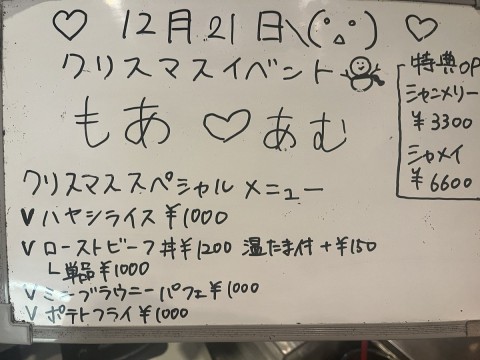 ♡ 12月21日\(°△°) ♡
クリスマスイベント
もあ ♡ あむ
特典OP
シャンメリー
¥3300
シャメイ
¥6600
クリスマススペシャルメニュー
V ハヤシライス ¥1000
V ローストビーフ丼¥1200 温たま付 +¥150
└単品¥1000
V ミニブラウニーパフェ¥1000
V ポテトフライ¥1000